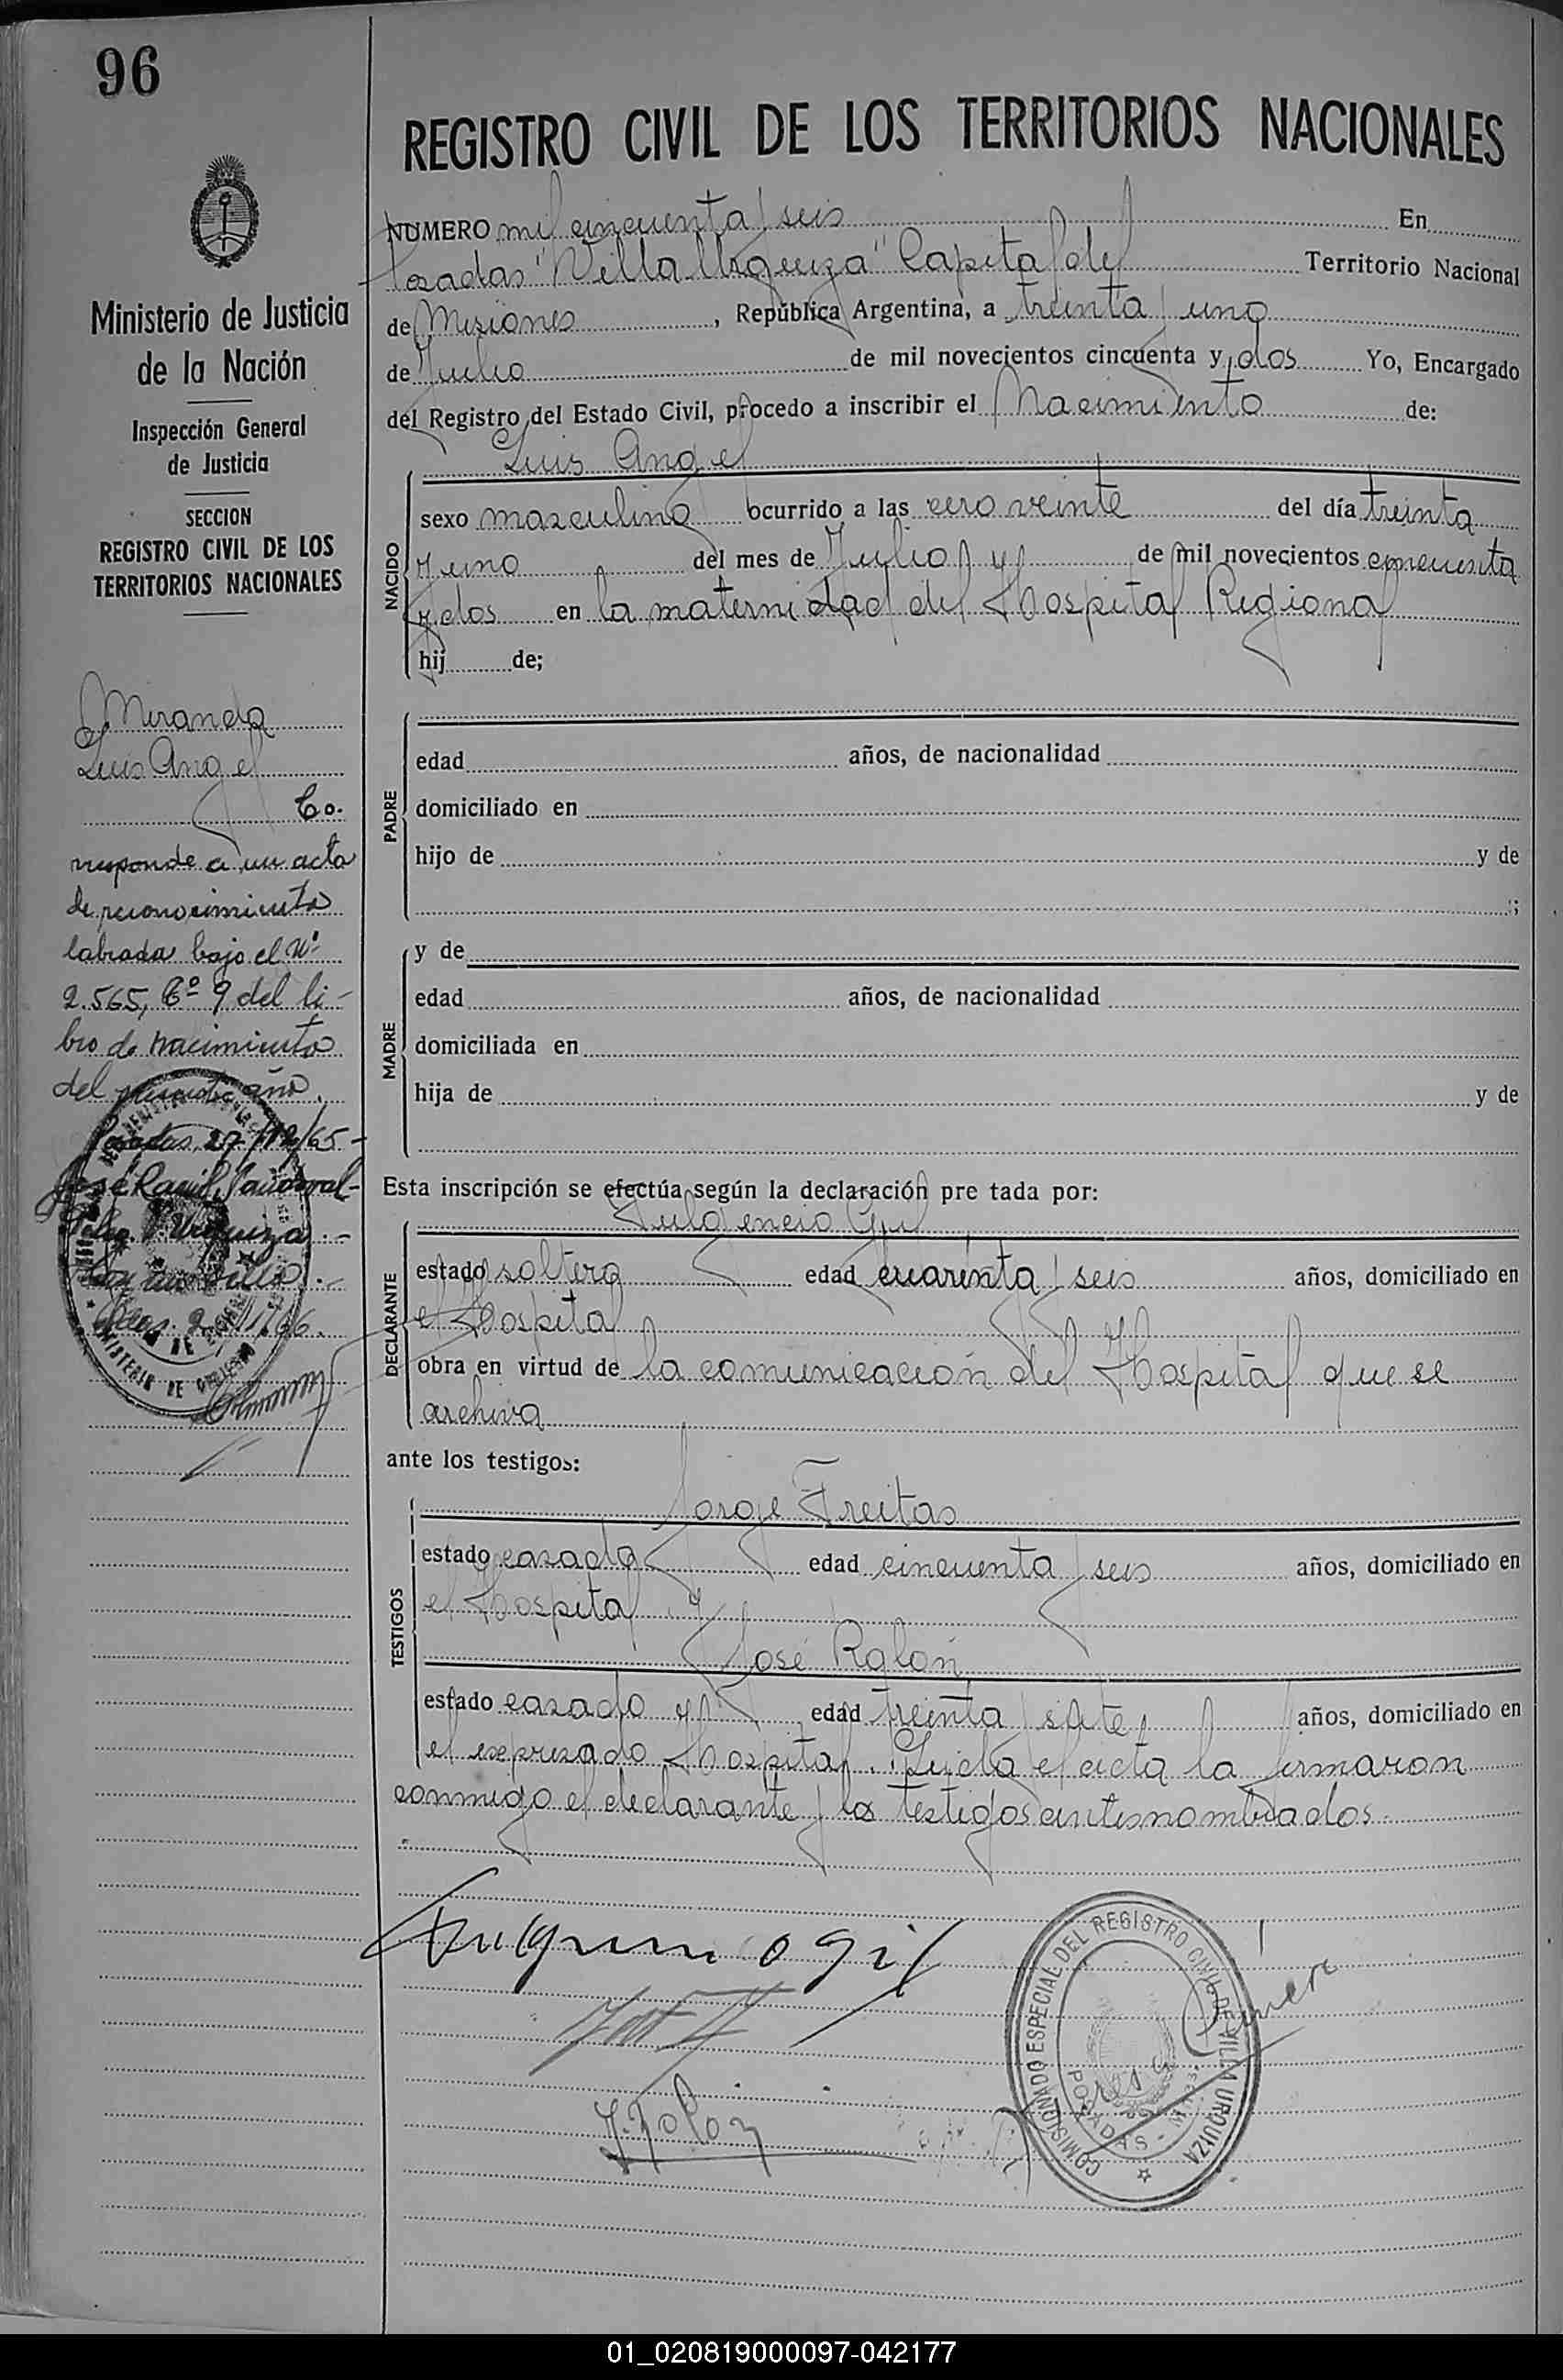 96
REGISTRO CIVIL DE LOS TERRITORIOS NACIONALES
Ministerio de Justicia
de la Nación
Inspección General
de Justicia
SECCION
REGISTRO CIVIL DE LOS
TERRITORIOS NACIONALES
Miranda
Luis Angel
Co-
rresponde a un acta
de reconocimiento
labrada bajo el Nº
2.565, Tº 9 del li-
bro de nacimiento
del presente año.
Posadas, 27/12/65-
José Raúl
V. Urquiza.-
NUMERO mil cincuenta y seis En
Posadas "Villa Urquiza" Capital del Territorio Nacional
de Misiones, República Argentina, a treinta y uno
de Julio de mil novecientos cincuenta y dos Yo, Encargado
del Registro del Estado Civil, procedo a inscribir el Nacimiento de:
Luis Angel
NACIDO
sexo masculino ocurrido a las cero veinte del día treinta
y uno del mes de Julio de mil novecientos cincuenta
y dos en la maternidad del Hospital Regional
hij de;
PADRE
edad años, de nacionalidad
domiciliado en
hijo de y de
;
MADRE
y de
edad años, de nacionalidad
domiciliada en
hija de y de
Esta inscripción se efectúa según la declaración pre tada por:
Fulgencio Gil
DECLARANTE
estado soltero edad cuarenta y seis años, domiciliado en
el Hospital
obra en virtud de la comunicación del Hospital que se
archiva
ante los testigos:
Jorge Freitas
TESTIGOS
estado casado edad cincuenta y seis años, domiciliado en
el Hospital y
José Rolón
estado casado edad treinta y siete años, domiciliado en
el expresado Hospital. Leída el acta la firmaron
conmigo el declarante y los testigos antes nombrados.
Fulgencio Gil
J. Rolon
COMISIONADO ESPECIAL DEL REGISTRO CIVIL DE VILLA URQUIZA
POSADAS -
01_020819000097-042177